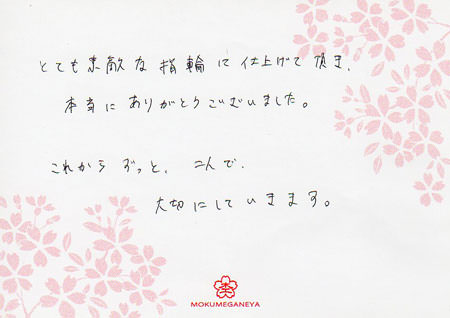 とても素敵な指輪に仕上げて頂き、
本当にありがとうございました。
これからずっと、二人で、
大切にしていきます。
MOKUMEGANEYA